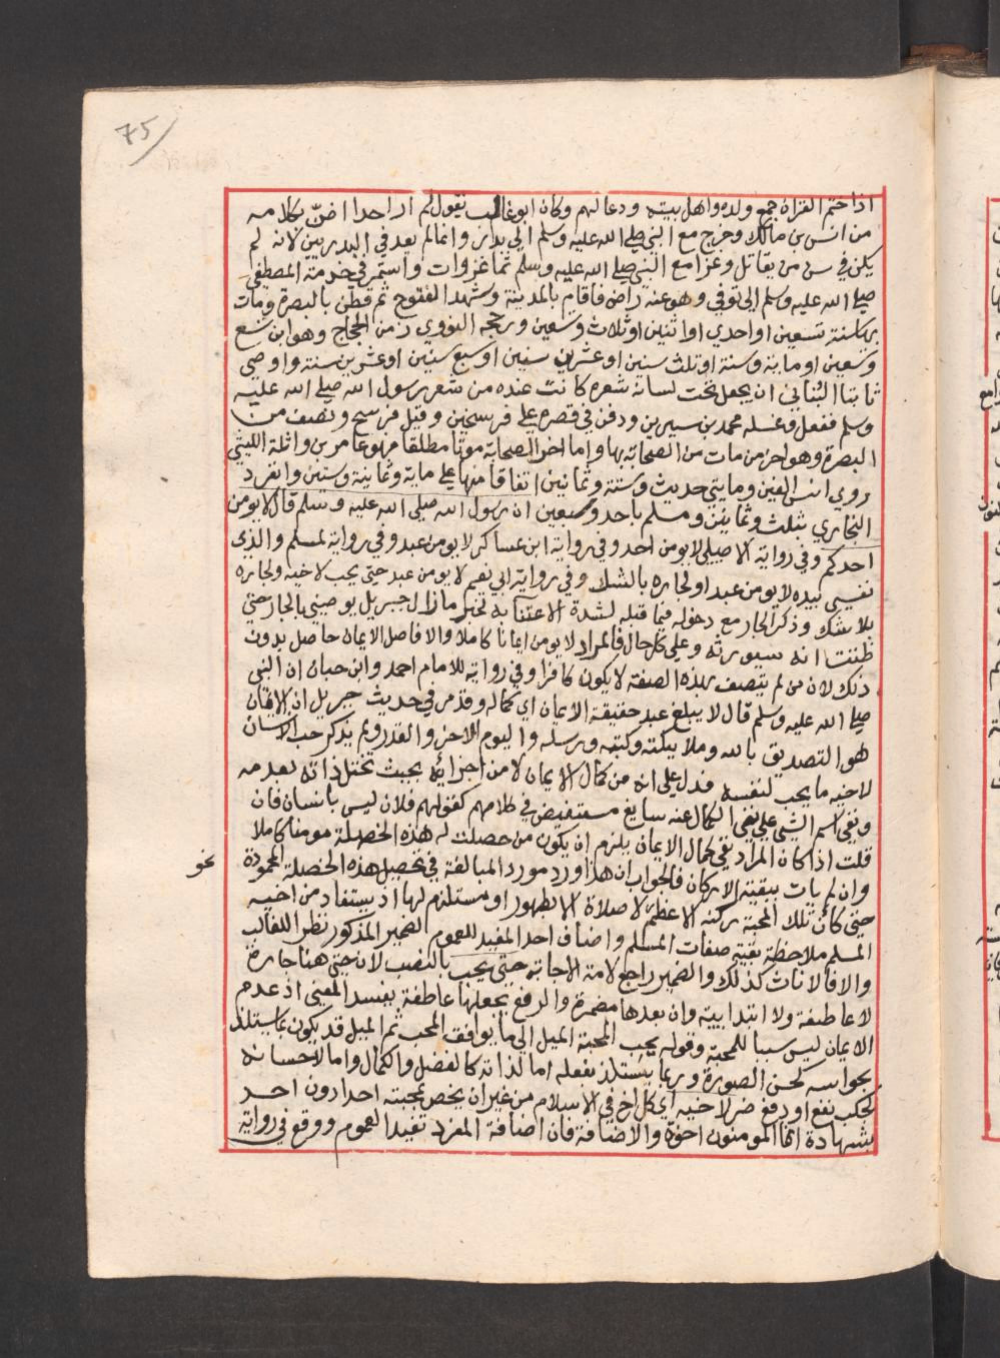 75
اذا ختم القران جمع ولده واهل بيته ودعا لهم وكان ابو غالب يقول لم ار احدا اضن بكلامه
من انس بن مالك وخرج مع النبي صلي الله عليه وسلم الي بدر وانما لم يعد في البدريين لانه لم
يكن في سن من يقاتل وغزا مع النبي صلي الله عليه وسلم ثما غزوات واستمر في خدمة المصطفي
صلي الله عليه وسلم الي توفي وهو عنه راض فاقام بالمدينة وشهد الفتوح ثم قطن بالبصرة ومات
بها سنة تسعين او احدي او اثنين او ثلاث وتسعين ورجحه النووي زمن الحجاج وهو ابن تسع
وتسعين او ماية وسنة او ثلث سنين او عشرين سنين او سبع سنين او عشرين سنة واوصي
ثابتا البُناني ان يجعل تحت لسانه شعره كانت عنده من شعر رسول الله صلي الله عليه
وسلم ففعل وغسله محمد بن سيرين ودفن في قصره علي فرسخين وقيل فرسخ ونصف من
البصرة وهو اخر من مات من الصحابة بها واما اخر الصحابة موتا مطلقا فهو عامر بن واثلة الليثي
روي انس الفين ومايتي حديث وستة وثمانين اتفاقا منها علي ماية وثمانية وستين وانفرد
البخاري بثلث وثمانين ومسلم باحد وسبعين ان رسول الله صلي الله عليه وسلم قال لا يومن
احدكم وفي رواية الاصيلي لا يومن احد وفي رواية ابن عساكر لا يومن عبد وفي رواية لمسلم والذي
نفسي بيده لا يومن عبد او لجاره بالشك وفي رواية ابي نعيم لا يومن عبد حتي يحب لاخيه ولجاره
بلا شك وذكر الجار مع دخوله فيما قبله لشدة الاعتنا به لخبر ما زال جبريل يوصيني بالجار حتي
ظننت انه سيورثه وعلي كل حال فالمراد لا يومن ايمانا كاملا والا فاصل الايمان حاصل بدون
ذلك لان من لم يتصف بهذه الصفة لا يكون كافرا وفي رواية للامام احمد وابن حبان ان النبي
صلي الله عليه وسلم قال لا يبلغ عبد حقيقة الايمان اي كماله وقد مر في حديث جبريل ان الايمان
هو التصديق بالله وملايكته وكتبه ورسله واليوم الاخر والقدر ولم يذكر حب الانسان
لاخيه ما يحب لنفسه فدل علي انه من كمال الايمان لا من اجزائه بحيث تختل ذاته بعدمه
ونفي اسم الشي علي نفي الكمال عنه سايغ مستفيض في كلامهم كقولهم فلان ليس بانسان فان
قلت اذا كان المراد نفي كمال الايمان يلزم ان يكون من حصلت له هذه الخصلة مومنا كاملا
وان لم يات ببقية الاركان فالجواب ان هذا ورد مورد المبالغة في تحصيل هذه الخصلة المحمودة
نحو
حتي كأن تلك المحبة ركنه الاعظم لا صلاة الا بطهور او مستلزم لها اذ يستفاد من اخيه
المسلم ملاحظة بقية صفات المسلم واضاف احد المفيد للعموم الضمير المذكور نظرا للغالب
والا فالاناث كذلك والضمير راجع لامة الاجابة حتي يحب بالنصب لان حتي هنا جارة
لا عاطفة ولا ابتدايية وان بعدها مضمرة والرفع بجعلها عاطفة يفسد المعني اذ عدم
الايمان ليس سببا للمحبة وقوله يحب المحبة الميل الي ما يوافق المحب ثم الميل قد يكون بما يستلذ
بحواسه كحسن الصورة وربما يستلذ بفعله اما لذاته كالفضل والكمال واما لاحسانه
كجلب نفع او دفع ضر لاخيه اي كل اخ في الاسلام من غير ان يخص بمحبته احدا دون احد
بشهادة انما المومنون اخوة والاضافة فان اضافة المفرد تفيد العموم ووقع في رواية